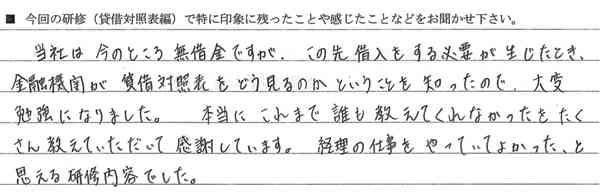 ■ 今回の研修（貸借対照表編）で特に印象に残ったことや感じたことなどをお聞かせ下さい。
当社は今のところ無借金ですが、この先借入をする必要が生じたとき、
金融機関が貸借対照表をどう見るのかということを知ったので、大変
勉強になりました。 本当にこれまで誰も教えてくれなかったをたく
さん教えていただいて感謝しています。 経理の仕事をやっていてよかった、と
思える研修内容でした。